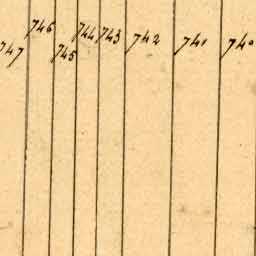 747
746
745
744
743
742
741
740